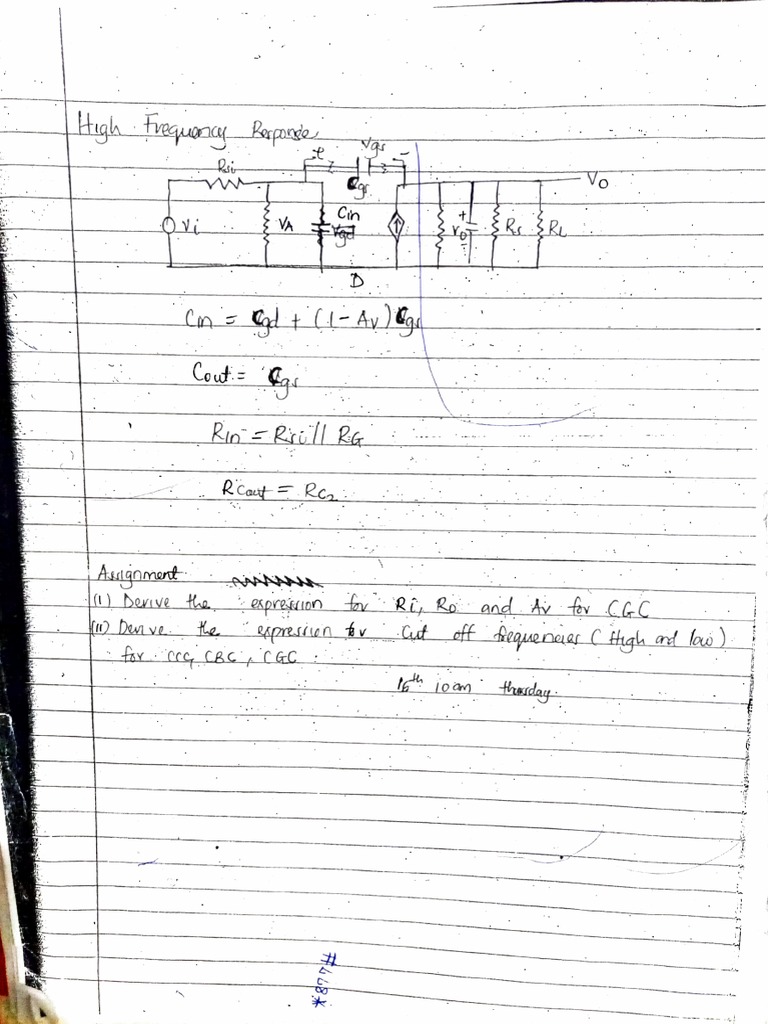 High Frequency Response
Rsi + Vgs -
Cgs
Vo
Vi VA Cin Vgd + ro - Rs RL
D
Cin = Cgd + (1 - Av) Cgs
Cout = Cgs
Rin = Rsi // RG
RCout = RC2
Assignment
(i) Derive the expression for Ri, Ro and Av for CGC
(ii) Derive the expression for Cut off frequencies (High and low)
for CCC, CBC, CGC
10am thursday
*877#